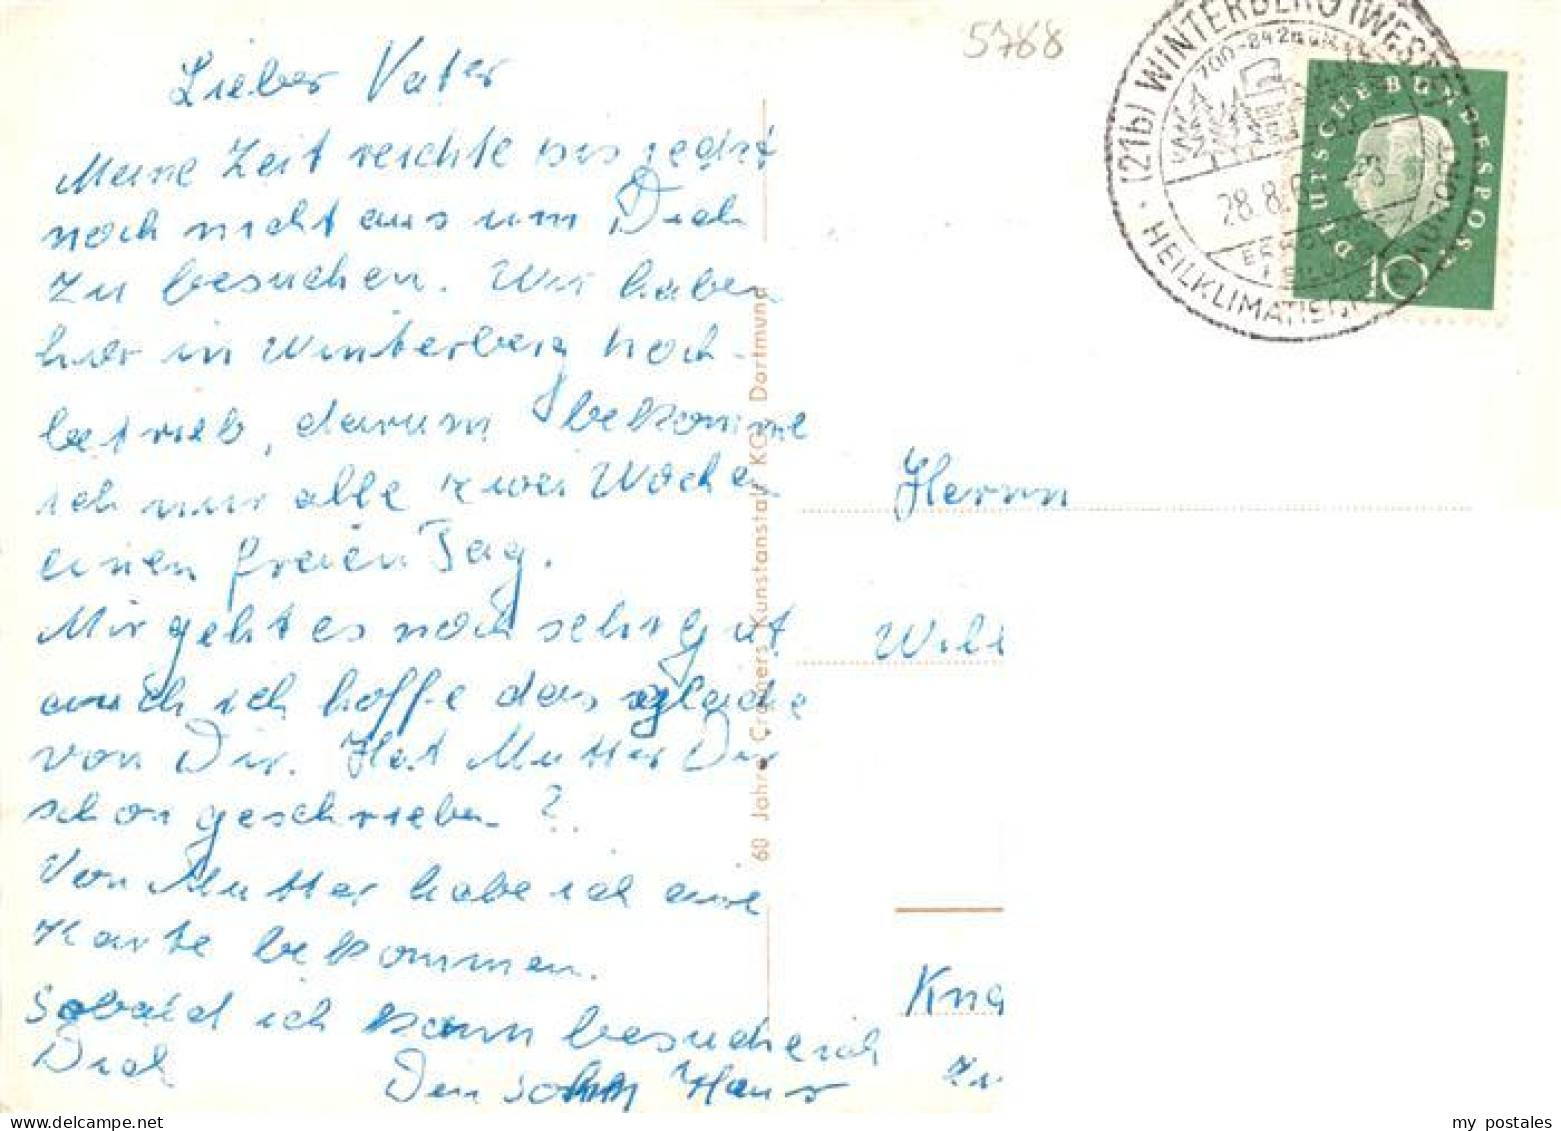 5788
Lieber Vater
Meine Zeit reichte bis jedtzt
noch nicht aus um Dich
zu besuchen. Wir haben
hier in Winterberg hoch-
betrieb, darum bekomme
ich nur alle zwei Wochen
einen freien Tag.
Mir geht es noch sehr gut
auch ich hoffe das gleiche
von Dir. Hat Mutter Dir
schon geschrieben?
Von Mutter habe ich eine
Karte bekommen.
Sobald ich kann besuche ich
Dich
Dein Sohn Hans
60 Jahre Cramers Kunstanstalt KG, Dortmund
(21b) WINTERBERG (WESTF
700-842m
28.8.6
HEILKLIMATISCH KURORT
DEUTSCHE BUNDESPOST
10
Herrn
Will
Kna
my postales